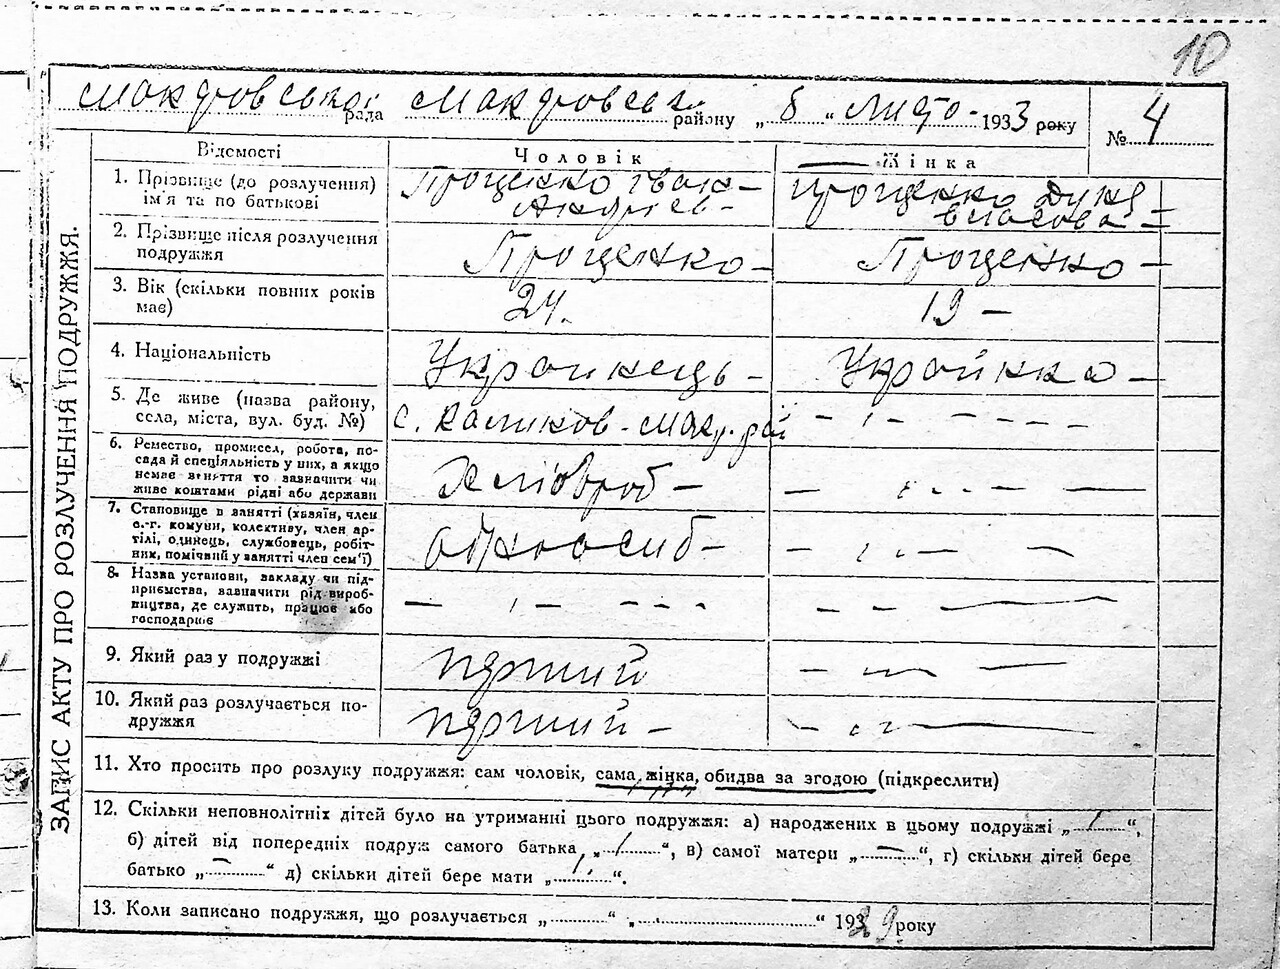 10
Макарівської рада Макарівськ району „ 8 “ Люто- 1933 року № 4
ЗАПИС АКТУ ПРО РОЗЛУЧЕННЯ ПОДРУЖЖЯ.
Відомості Чоловік Жінка
1. Прізвище (до розлучення) Проценко Іван- Проценко
ім'я та по батькові Андріев- Власова-
2. Прізвище після розлучення
подружжя Проценко- Проценко-
3. Вік (скільки повних років
має) 24. 19 -
4. Національність Українець- Українка-
5. Де живе (назва району,
села, міста, вул. буд. №) с. Мак. рай - ı - - - -
6. Ремество, промисел, робота, по-
сада й спеціяльність у них, а якщо
немає заняття то зазначити чи
живе коштами рідні або держави Хліброб-
7. Становище в занятті (хазяїн, член
с.-г. комуни, колективу, член ар-
тілі, одинець, службовець, робіт-
ник, помічний у занятті член сем'ї) одноосиб-
8. Назва установи, закладу чи під-
приємства, зазначити рід вироб-
ництва, де служить, працює або
господарює
9. Який раз у подружжі перший
10. Який раз розлучається по-
дружжя перший-
11. Хто просить про розлуку подружжя: сам чоловік, сама жінка, обидва за згодою (підкреслити)
12. Скільки неповнолітніх дітей було на утриманні цього подружжя: а) народжених в цьому подружжі „ / “,
б) дітей від попередніх подруж самого батька „ / “, в) самої матери „ — “, г) скільки дітей бере
батько „ — “ д) скільки дітей бере мати „ “.
13. Коли записано подружжя, що розлучається „ “ „ “ 193 року